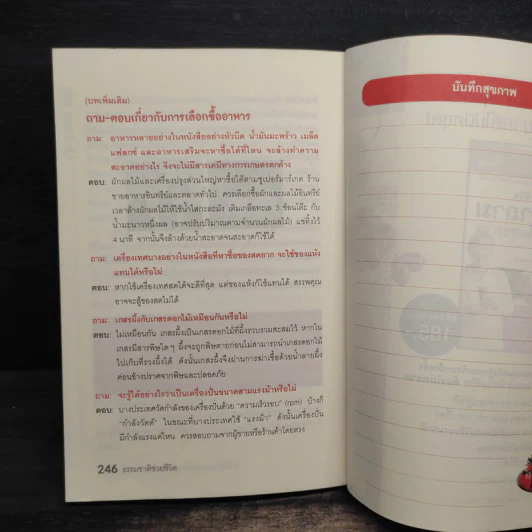 (บทเพิ่มเติม)
ถาม-ตอบเกี่ยวกับการเลือกซื้ออาหาร
ถาม: อาหารหลายอย่างในหนังสืออย่างหัวบีต น้ำมันมะพร้าว เมล็ด
แฟลกซ์ และอาหารเสริมจะหาซื้อได้ที่ไหน จะล้างทำความ
สะอาดอย่างไร จึงจะไม่มีสารเคมีทางการเกษตรตกค้าง
ตอบ: ผักผลไม้และเครื่องปรุงส่วนใหญ่หาซื้อได้ตามซูเปอร์มาร์เกต ร้าน
ขายอาหารอินทรีย์และตลาดทั่วไป ควรเลือกซื้อผักและผลไม้อินทรีย์
เวลาล้างผักผลไม้ให้ใช้น้ำใส่กะละมัง เติมเกลือทะเล 3 ช้อนโต๊ะ กับ
น้ำมะนาวหนึ่งผล (อาจปรับปริมาณตามจำนวนผักผลไม้) แช่ทิ้งไว้
4 นาที จากนั้นจึงล้างด้วยน้ำสะอาดจนสะอาดก็ใช้ได้
ถาม: เครื่องเทศบางอย่างในหนังสือที่หาซื้อของสดยาก จะใช้ของแห้ง
แทนได้หรือไม่
ตอบ: หากใช้เครื่องเทศสดได้จะดีที่สุด แต่ของแห้งก็ใช้แทนได้ สรรพคุณ
อาจจะสู้ของสดไม่ได้
ถาม: เกสรผึ้งกับเกสรดอกไม้เหมือนกันหรือไม่
ตอบ: ไม่เหมือนกัน เกสรผึ้งเป็นเกสรดอกไม้ที่ผึ้งรวบรวมสะสมไว้ หากใน
เกสรมีสารพิษใดๆ ผึ้งจะถูกพิษตายก่อนไม่สามารถนำเกสรดอกไม้
ไปเก็บที่รวงผึ้งได้ ดังนั้นเกสรผึ้งจึงผ่านการฆ่าเชื้อด้วยน้ำลายผึ้ง
ค่อนข้างปราศจากพิษและปลอดภัย
ถาม: จะรู้ได้อย่างไรว่าเป็นเครื่องปั่นขนาดสามแรงม้าหรือไม่
ตอบ: บางประเทศวัดกำลังของเครื่องปั่นด้วย "ความเร็วรอบ" (rpm) บ้างก็
"กำลังวัตต์" ในขณะที่บางประเทศใช้ "แรงม้า" ดังนั้นเครื่องปั่น
มีกำลังแรงแค่ไหน ควรสอบถามจากผู้ขายหรือร้านค้าโดยตรง
246 ธรรมชาติช่วยชีวิต
บันทึกสุขภาพ